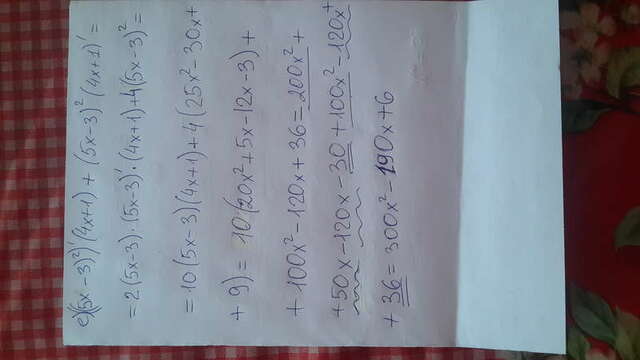 e) ((5x-3)²)'(4x+1) + (5x-3)²(4x+1)' =
= 2(5x-3)·(5x-3)'·(4x+1)+4(5x-3)² =
= 10(5x-3)(4x+1)+4(25x²-30x+
+ 9) = 10(20x²+5x-12x-3) +
+ 100x²-120x+36 = 200x² +
+50x-120x-30+100x²-120x+
+ 36 = 300x²-190x+6